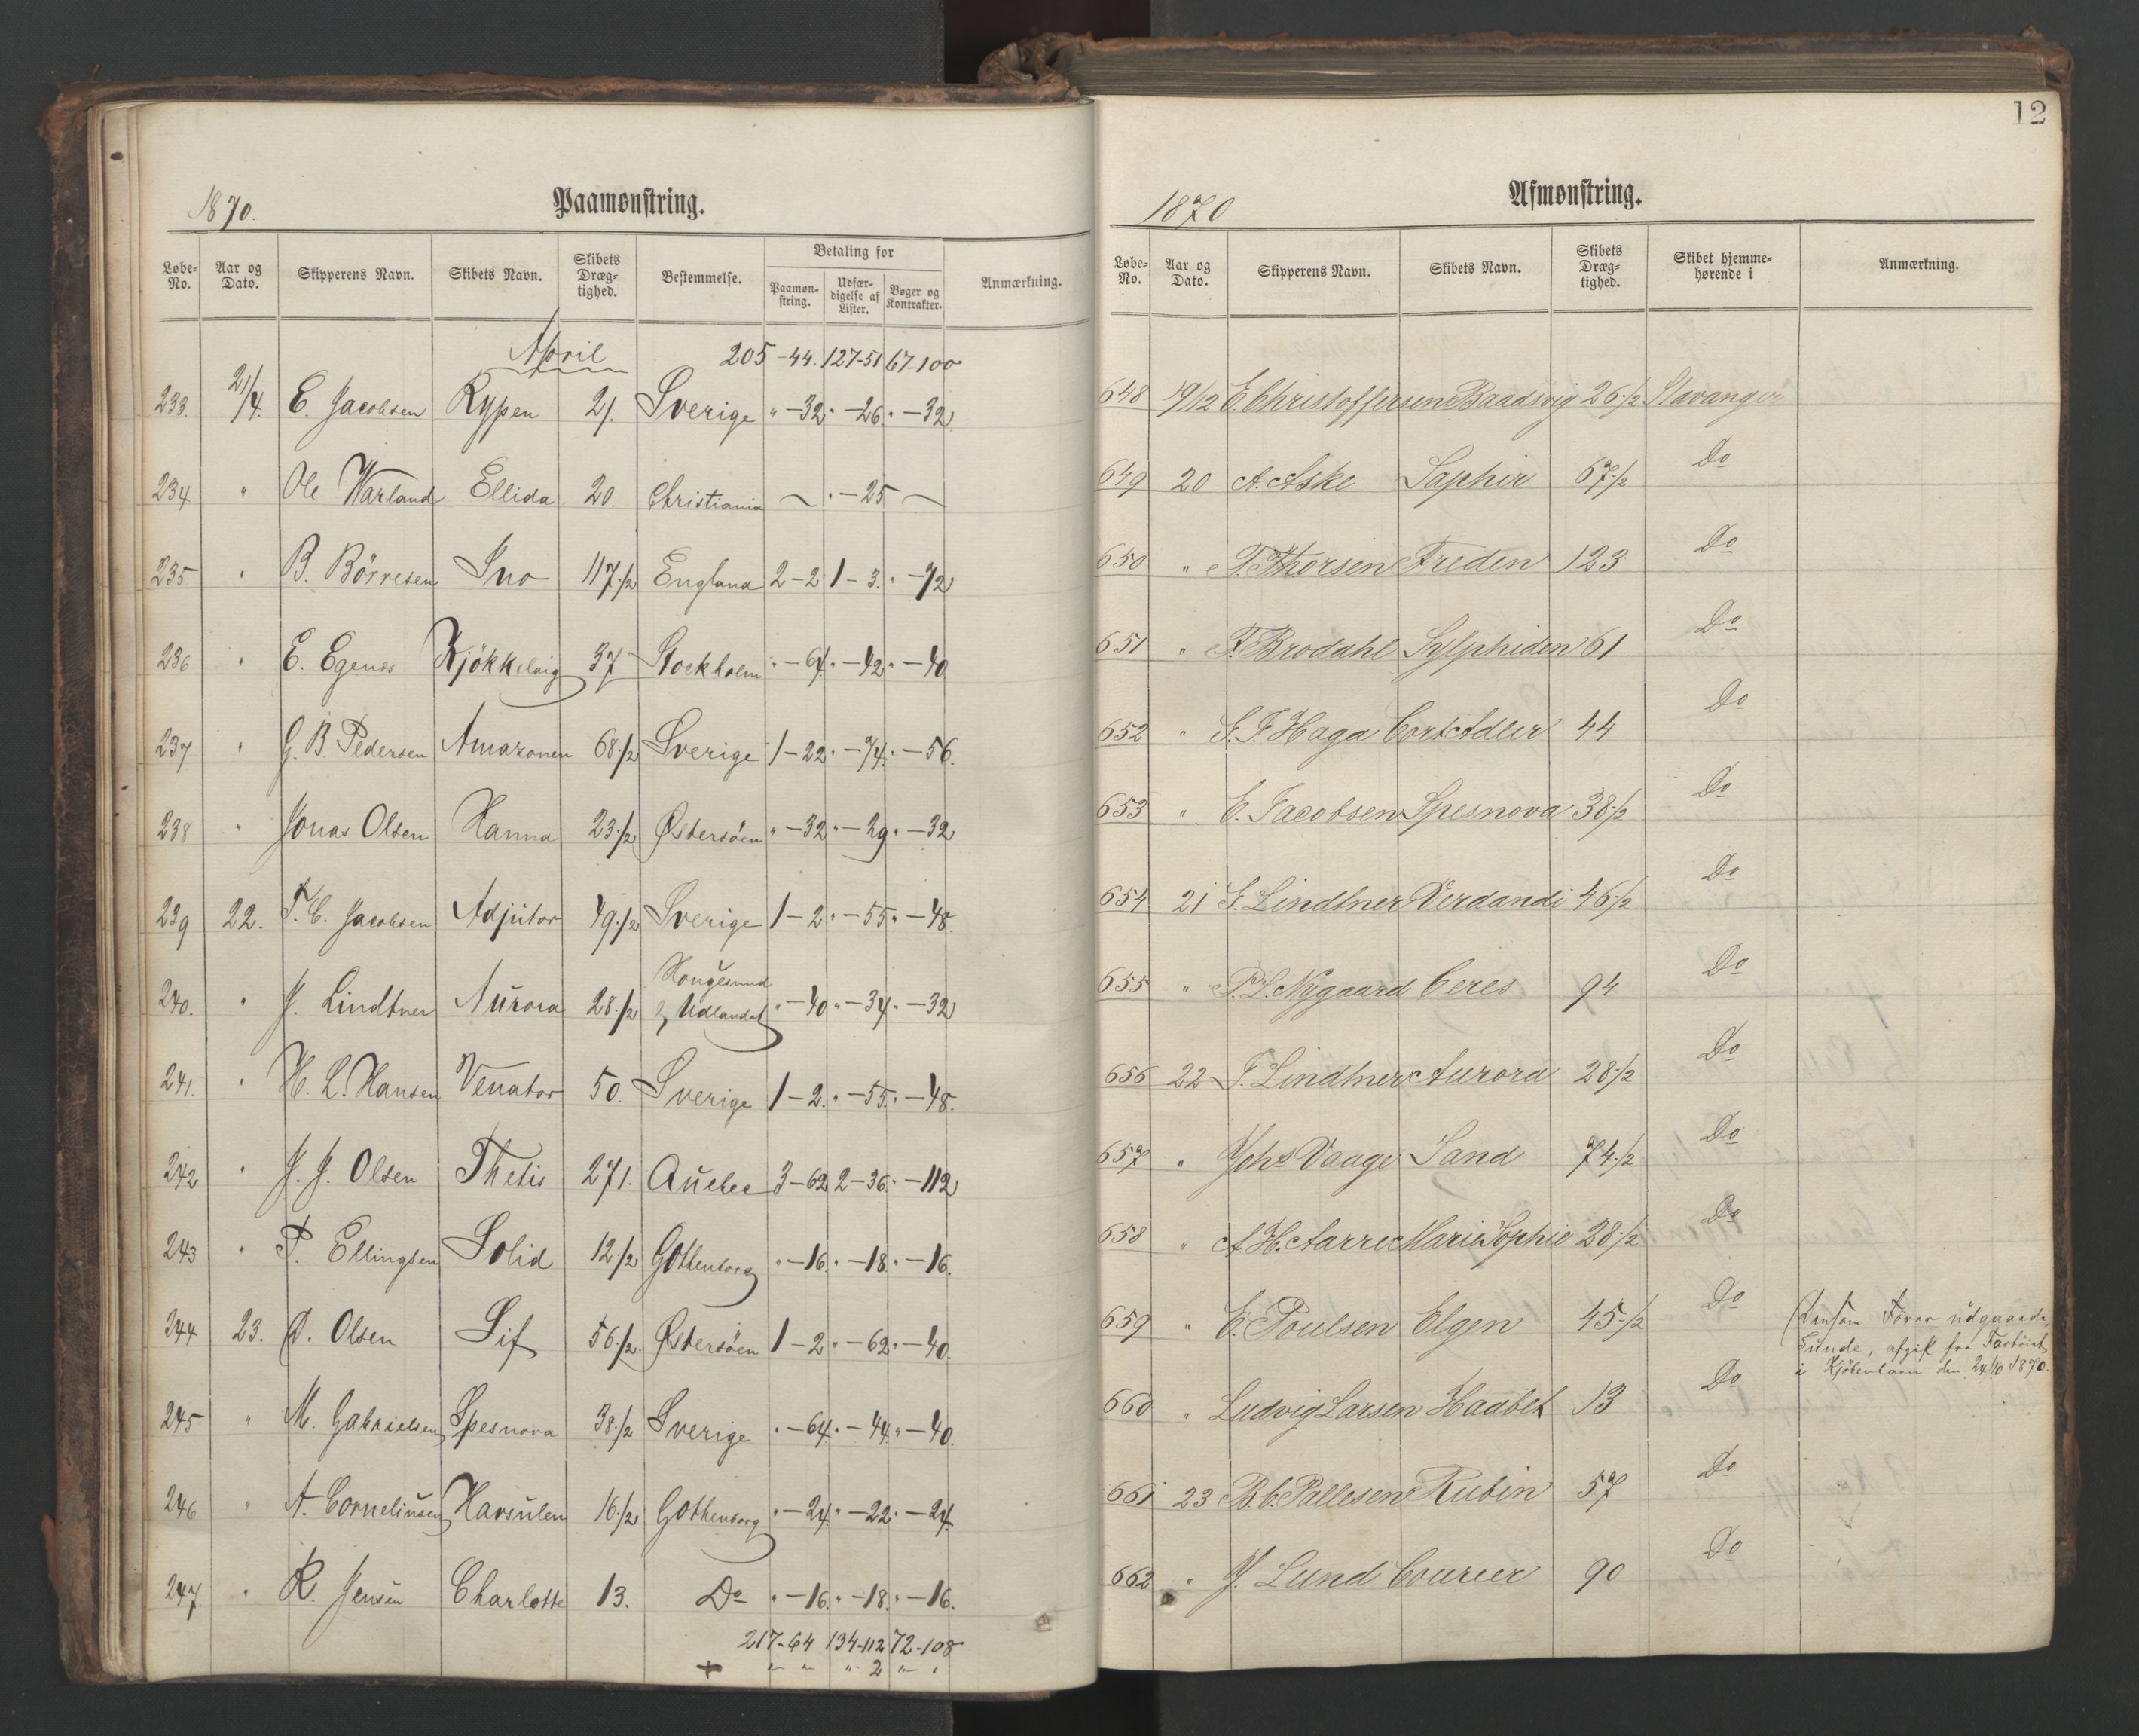 1870.
Paamønstring.
Løbe-No. Aar og Dato. Skipperens Navn. Skibets Navn. Skibets Dræg-tighed. Bestemmelse. Betaling for Paamøn-string. Udfær-digelse af Lister. Bøger og Kontrakter. Anmærkning.
April 205-44. 127-51 67-100
233. 21/4. E. Jacobsen Rypen 21. Sverige " -32 " -26. " -32
234 " Ole Warland Ellida 20. Christiania — " -25 —
235 " B. Börresen Ino 117 1/2 England 2-2 1-3. " -72
236 " E. Egenes Kjökkelvig 37 Stockholm " -64. " -42 " -40
237 " G. B. Pedersen Amazonen 68 1/2 Sverige 1-22 " -74. " -56.
238 " Jonas Olsen Hanna 23 1/2 Østersöen " -32 " -29 " -32
239 22. T. C. Jacobsen Adjutor 49 1/2 Sverige 1-2 " -55 " -48.
240. " J. Lindtner Aurora 28 1/2 Hougesund & Udlandet " -40 " -34 " -32
241. " H. L. Hansen Venator 50. Sverige 1-2. " -55. " -48.
242 " J. J. Olsen Thetis 271. Quebec 3-62 2-36. " -112
243 " P. Ellingsen Solid 12 1/2 Gothenborg " -16. " -18. " -16.
244 23. O. Olsen Sif 56 1/2 Østersöen 1-2 " -62 " -40.
245 " M. Gabrielsen Spesnova 38 1/2 Sverige " -64. " -44. " -40.
246 " A. Corneliusen Havsulen 16 1/2 Gothenborg " -24. " -22. " -24.
247 " R. Jensen Charlotte 13. Do " -16. " -18. " -16.
217-64 134-112 72-108
" " " 2 " "
12
1870
Afmønstring.
Løbe-No. Aar og Dato. Skipperens Navn. Skibets Navn. Skibets Dræg-tighed. Skibet hjemme-hørende i Anmærkning.
648 19/12 E. Christoffersen Baadsvig 26 1/2 Stavanger
649 20 A. Aske Saphir 67 1/2 Do
650 " T. Thorsen Freden 123 Do
651 " F. Brodahl Sylphiden 61 Do
652 " S. F. Haga Cort Adler 44 Do
653 " E. Jacobsen Spesnova 38 1/2 Do
654 21 S. Lindtner Verdandi 46 1/2 Do
655 " P. L. Nygaard Ceres 94 Do
656 22 J. Lindtner Aurora 28 1/2 Do
657 " Johs Vaage Sand 74 1/2 Do
658 " A. H. Aarre Marie Sophie 28 1/2 Do
659 " E. Poulsen Elgen 45 1/2 Do
Som Förer udgaaede,
Sunde, afgik fra Fartöiet
i Kjöbenhavn den 24/10 1870.
660 " Ludvig Larsen Haabet 13 Do
661 23 B. C. Pallesen Rubin 57 Do
662 " J. Lund Courier 90 Do